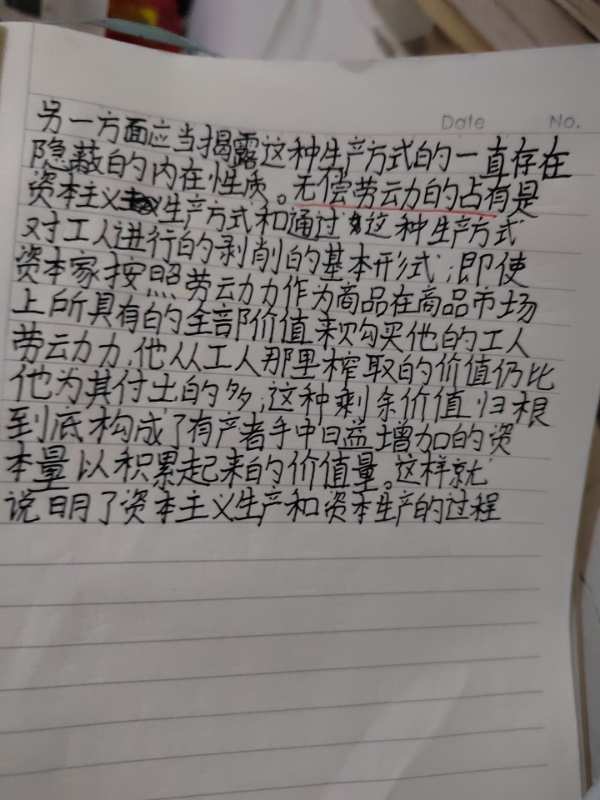 Date No.
另一方面应当揭露这种生产方式的一直存在
隐蔽的内在性质。无偿劳动力的占有是
资本主义生产方式和通过这种生产方式
对工人进行的剥削的基本形式;即使
资本家按照劳动力作为商品在商品市场
上所具有的全部价值来购买他的工人
劳动力,他从工人那里榨取的价值仍比
他为其付出的多;这种剩余价值归根
到底构成了有产者手中日益增加的资
本量以积累起来的价值量。这样就
说明了资本主义生产和资本生产的过程